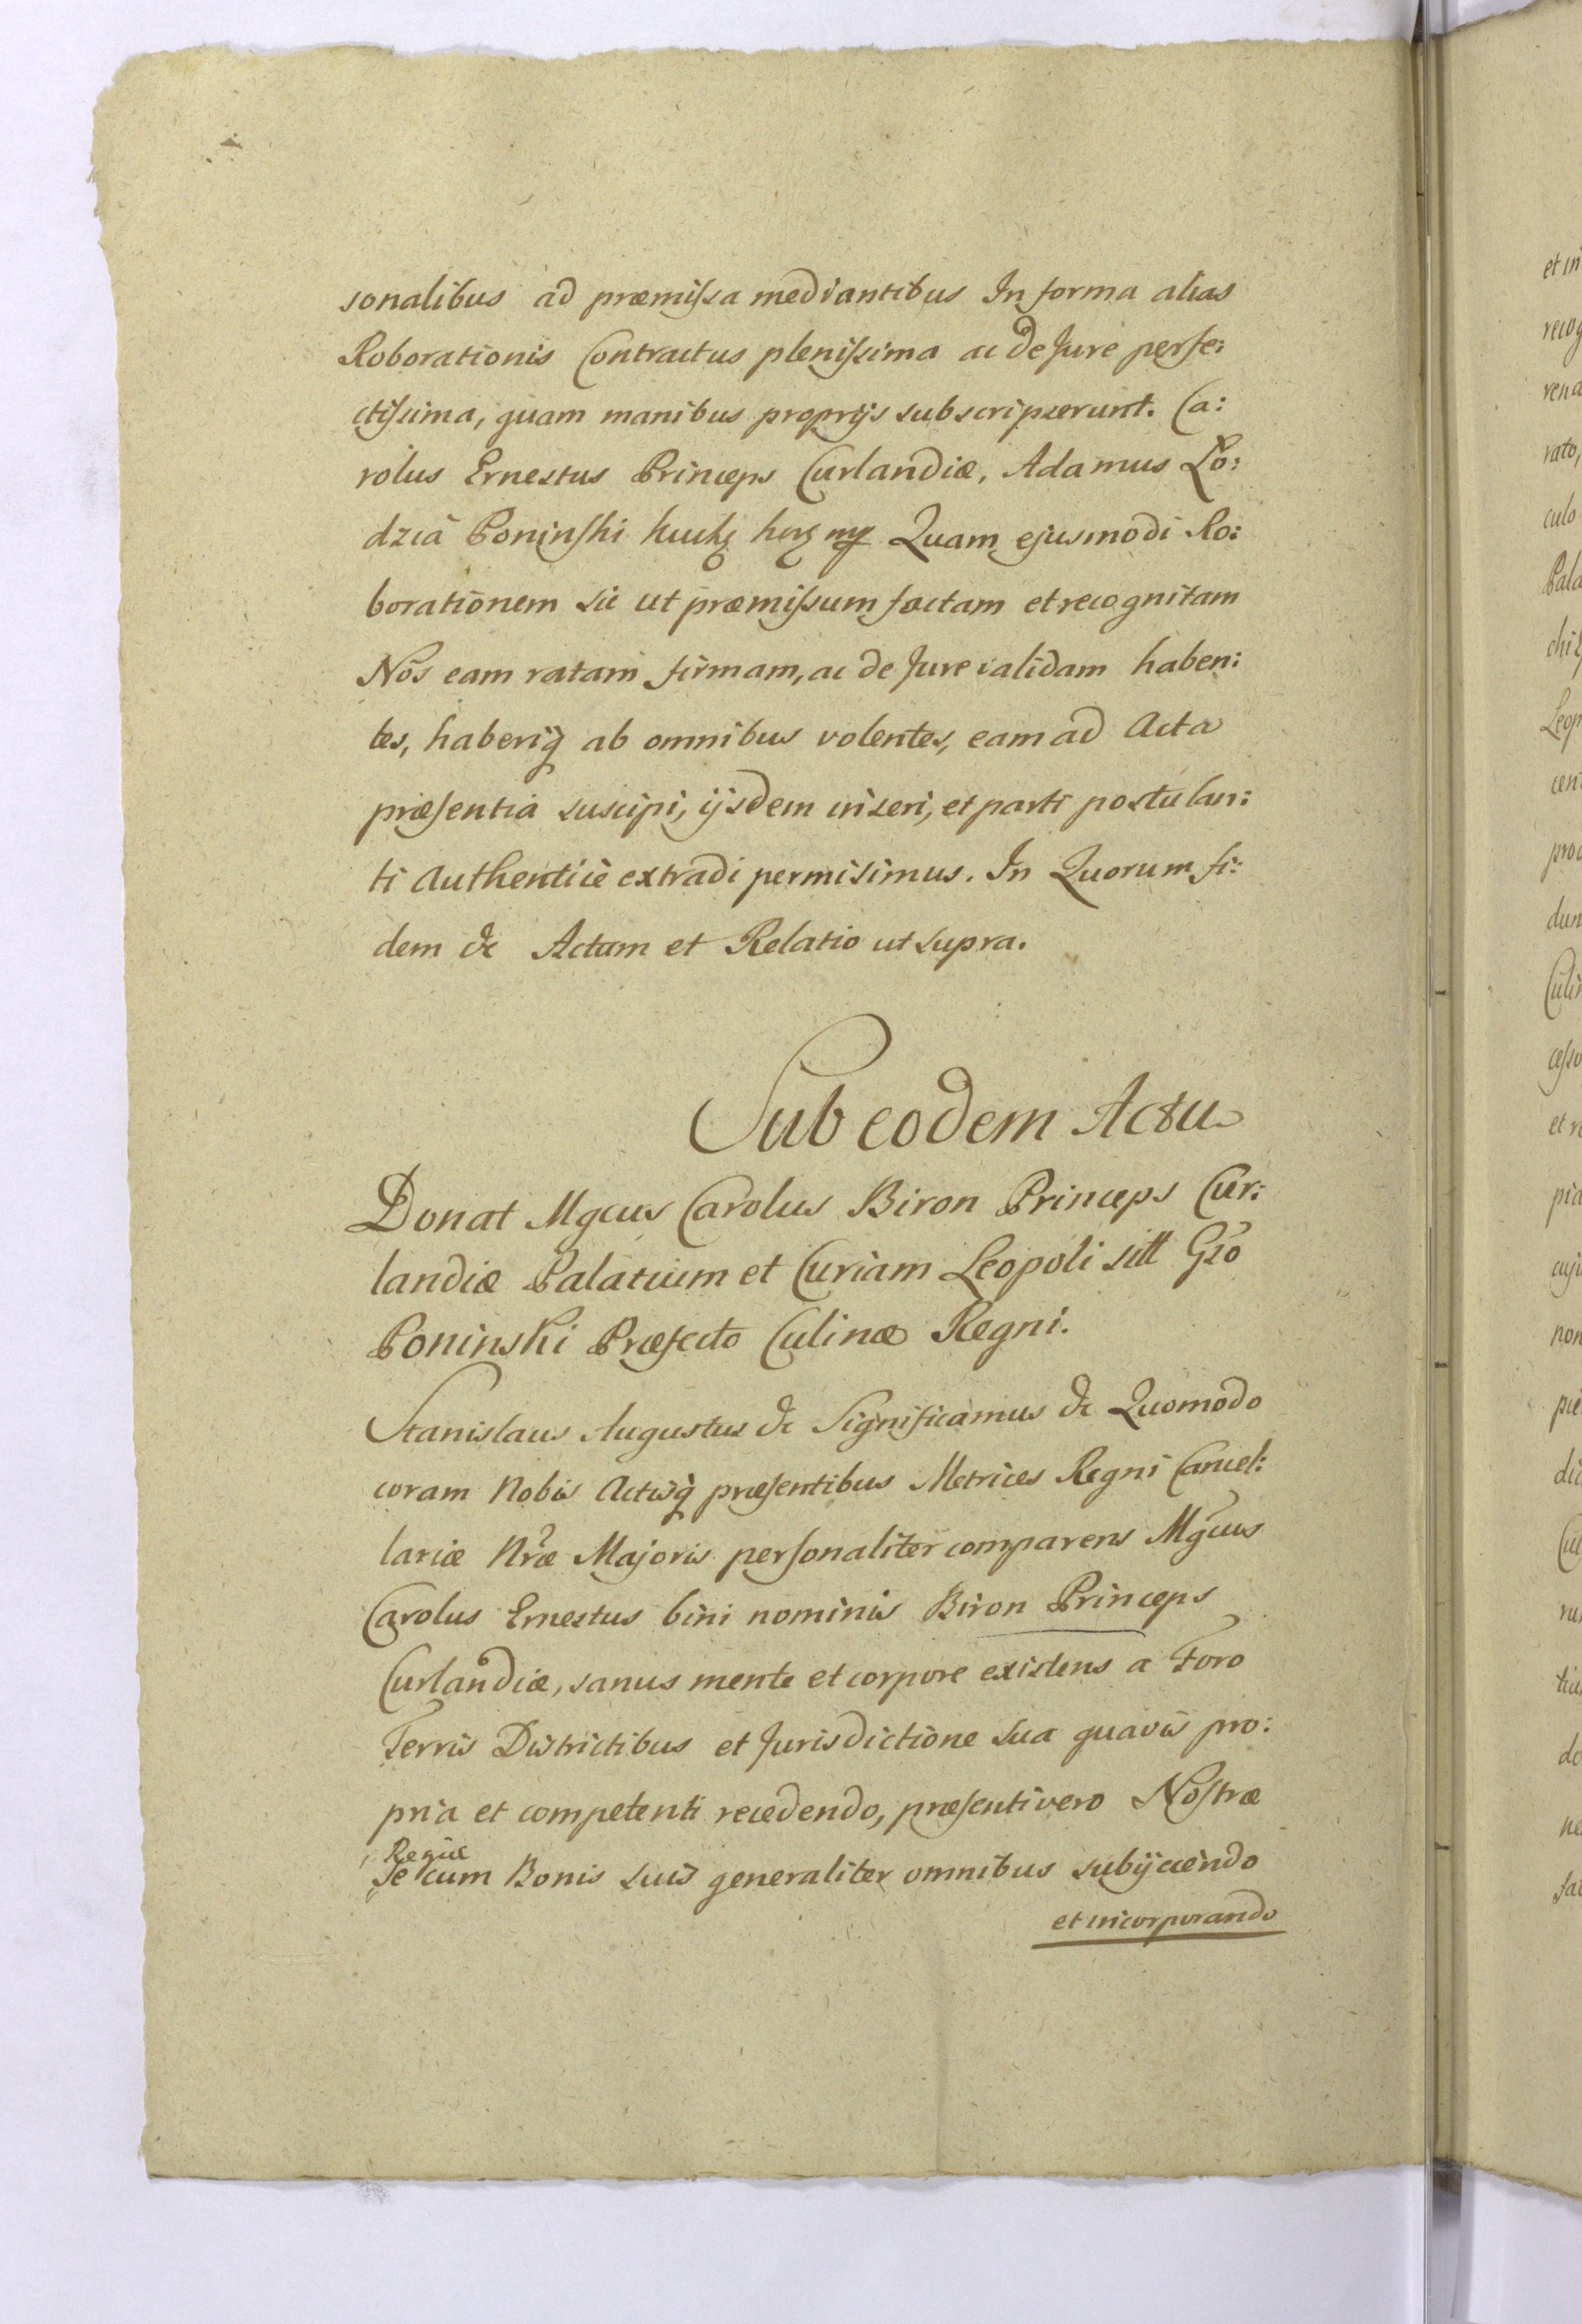 sonalibus ad præmissa mediantibus In forma alias
Roborationis Contractus plenissima ac de Jure perfe:
ctissima, quam manibus proprijs subscripserunt. Ca:
rolus Ernestus Princeps Curlandiæ, Adamus Lo:
dzia Poninski Quam ejusmodi Ro:
borationem sic ut præmissum factam et recognitam
Nos eam ratam firmam, ac de Jure validam haben:
tes, haberiq ab omnibus volentes, eam ad Acta
præsentia suscipi, ijsdem inseri, et parti postulan:
ti Authentice extradi permisimus. In Quorum fi:
dem &c Actum et Relatio ut supra.
Sub eodem Actu
Donat Mgcus Carolus Biron Princeps Cur:
landiæ Palatium et Curiam Leopoli sitt Gso
Poninski Præfecto Culinæ Regni.
Stanislaus Augustus &c Significamus &c Quomodo
coram Nobis Actisq præsentibus Metrices Regni Cancel:
lariæ Nræ Majoris personaliter comparens Mgcus
Carolus Ernestus bini nominis Biron Princeps
Curlandiæ, sanus mente et corpore existens a Foro
Terris Districtibus et Jurisdictione sua quavis pro:
pria et competenti recedendo, præsenti vero Nostræ
Regiæ
se cum Bonis suis generaliter omnibus subijciendo
et incorporando
et in
rato,
culo
Pala
Leop